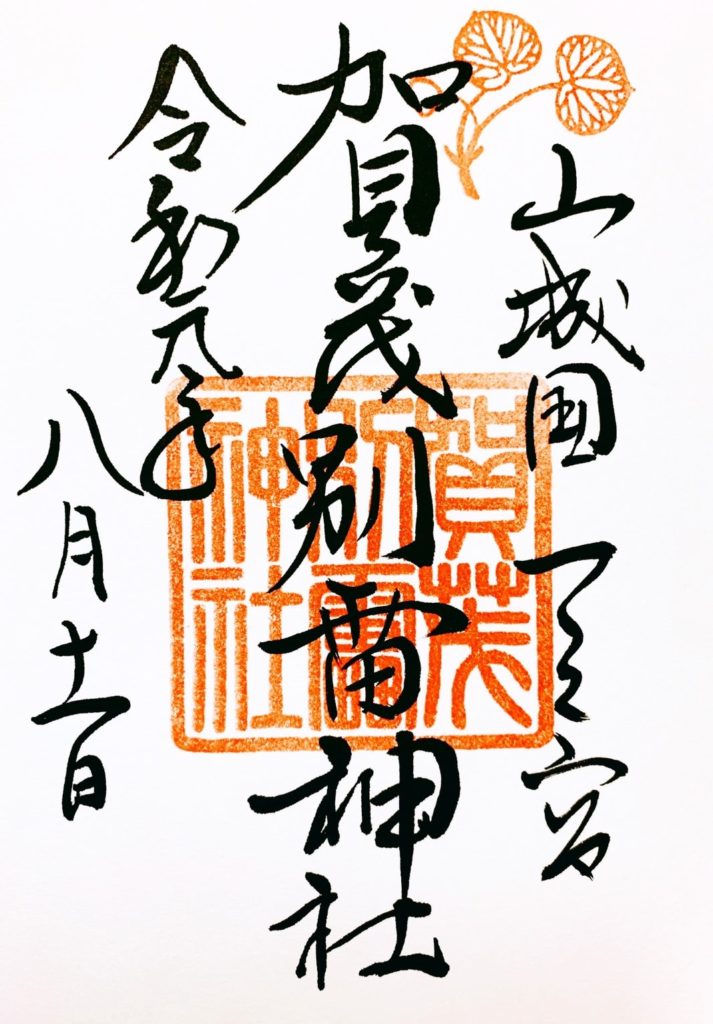 山城国一之宮
賀茂別雷神社
令和元年
八月十一日
賀茂
別雷
神社